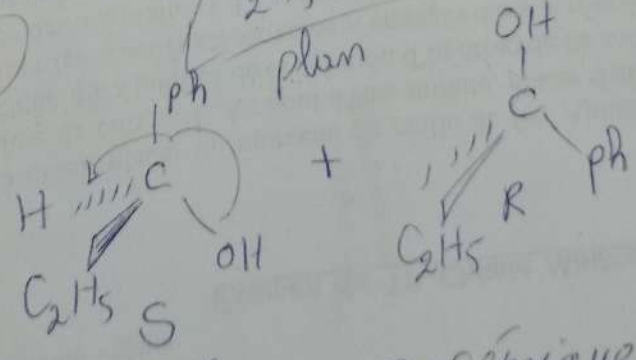 plan
Ph
C
H
OH
C₂H₅
S
+
OH
C
Ph
C₂H₅
R